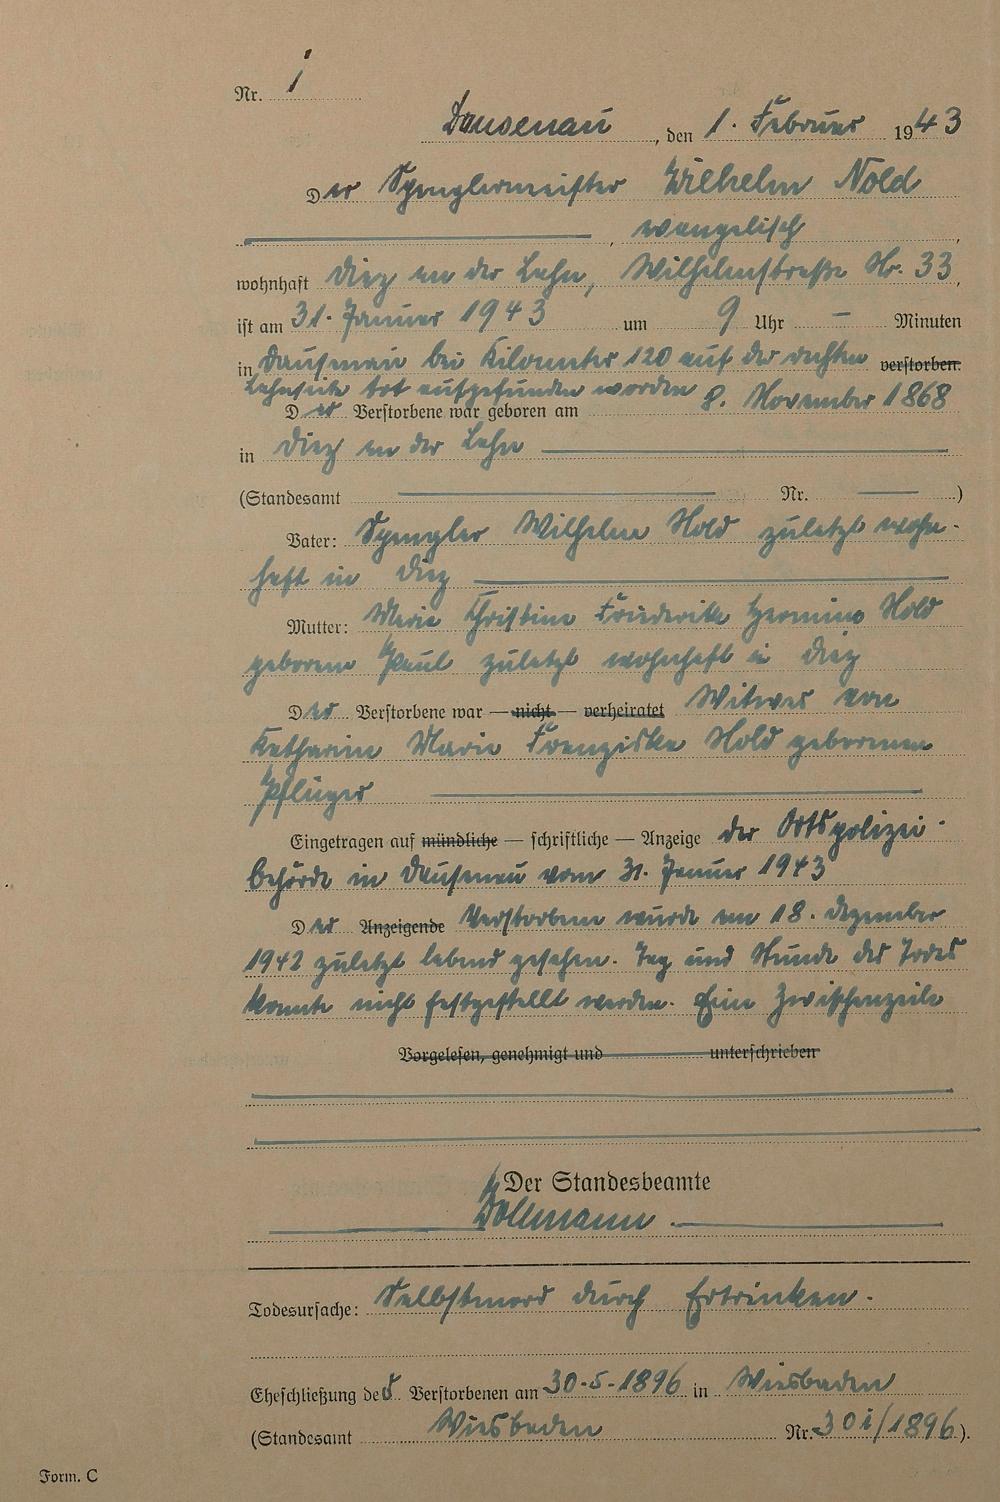 Nr. 1
Dausenau, den 1. Februar 1943
Der Spenglermeister Wilhelm Nold
, evangelisch,
wohnhaft Diez an der Lahn, Wilhelmstraße Nr. 33,
ist am 31. Januar 1943 um 9 Uhr – Minuten
in Dausenau bei Kilometer 120 auf der rechten verstorben.
Lahnseite tot aufgefunden worden
Der Verstorbene war geboren am 8. November 1868
in Diez an der Lahn
(Standesamt Nr. )
Vater: Spengler Wilhelm Nold zuletzt wohn-
haft in Diez
Mutter: Marie Christine Friederike Hermine Nold
geborene Paul zuletzt wohnhaft in Diez
Der Verstorbene war — nicht — verheiratet Witwer von
Katharina Maria Franziska Nold geborenen
Pflüger
Eingetragen auf mündliche — schriftliche — Anzeige der Ortspolizei-
behörde in Dausenau vom 31. Januar 1943
Der Anzeigende Verstorbene wurde am 18. Dezember
1942 zuletzt lebend gesehen. Tag und Stunde des Todes
konnte nicht festgestellt werden. Eine Zwischenzeile
Vorgelesen, genehmigt und unterschrieben
Der Standesbeamte
Döllmann
Todesursache: Selbstmord durch Ertrinken.
Eheschließung des Verstorbenen am 30.5.1896 in Wiesbaden
(Standesamt Wiesbaden Nr. 301/1896).
Form. C